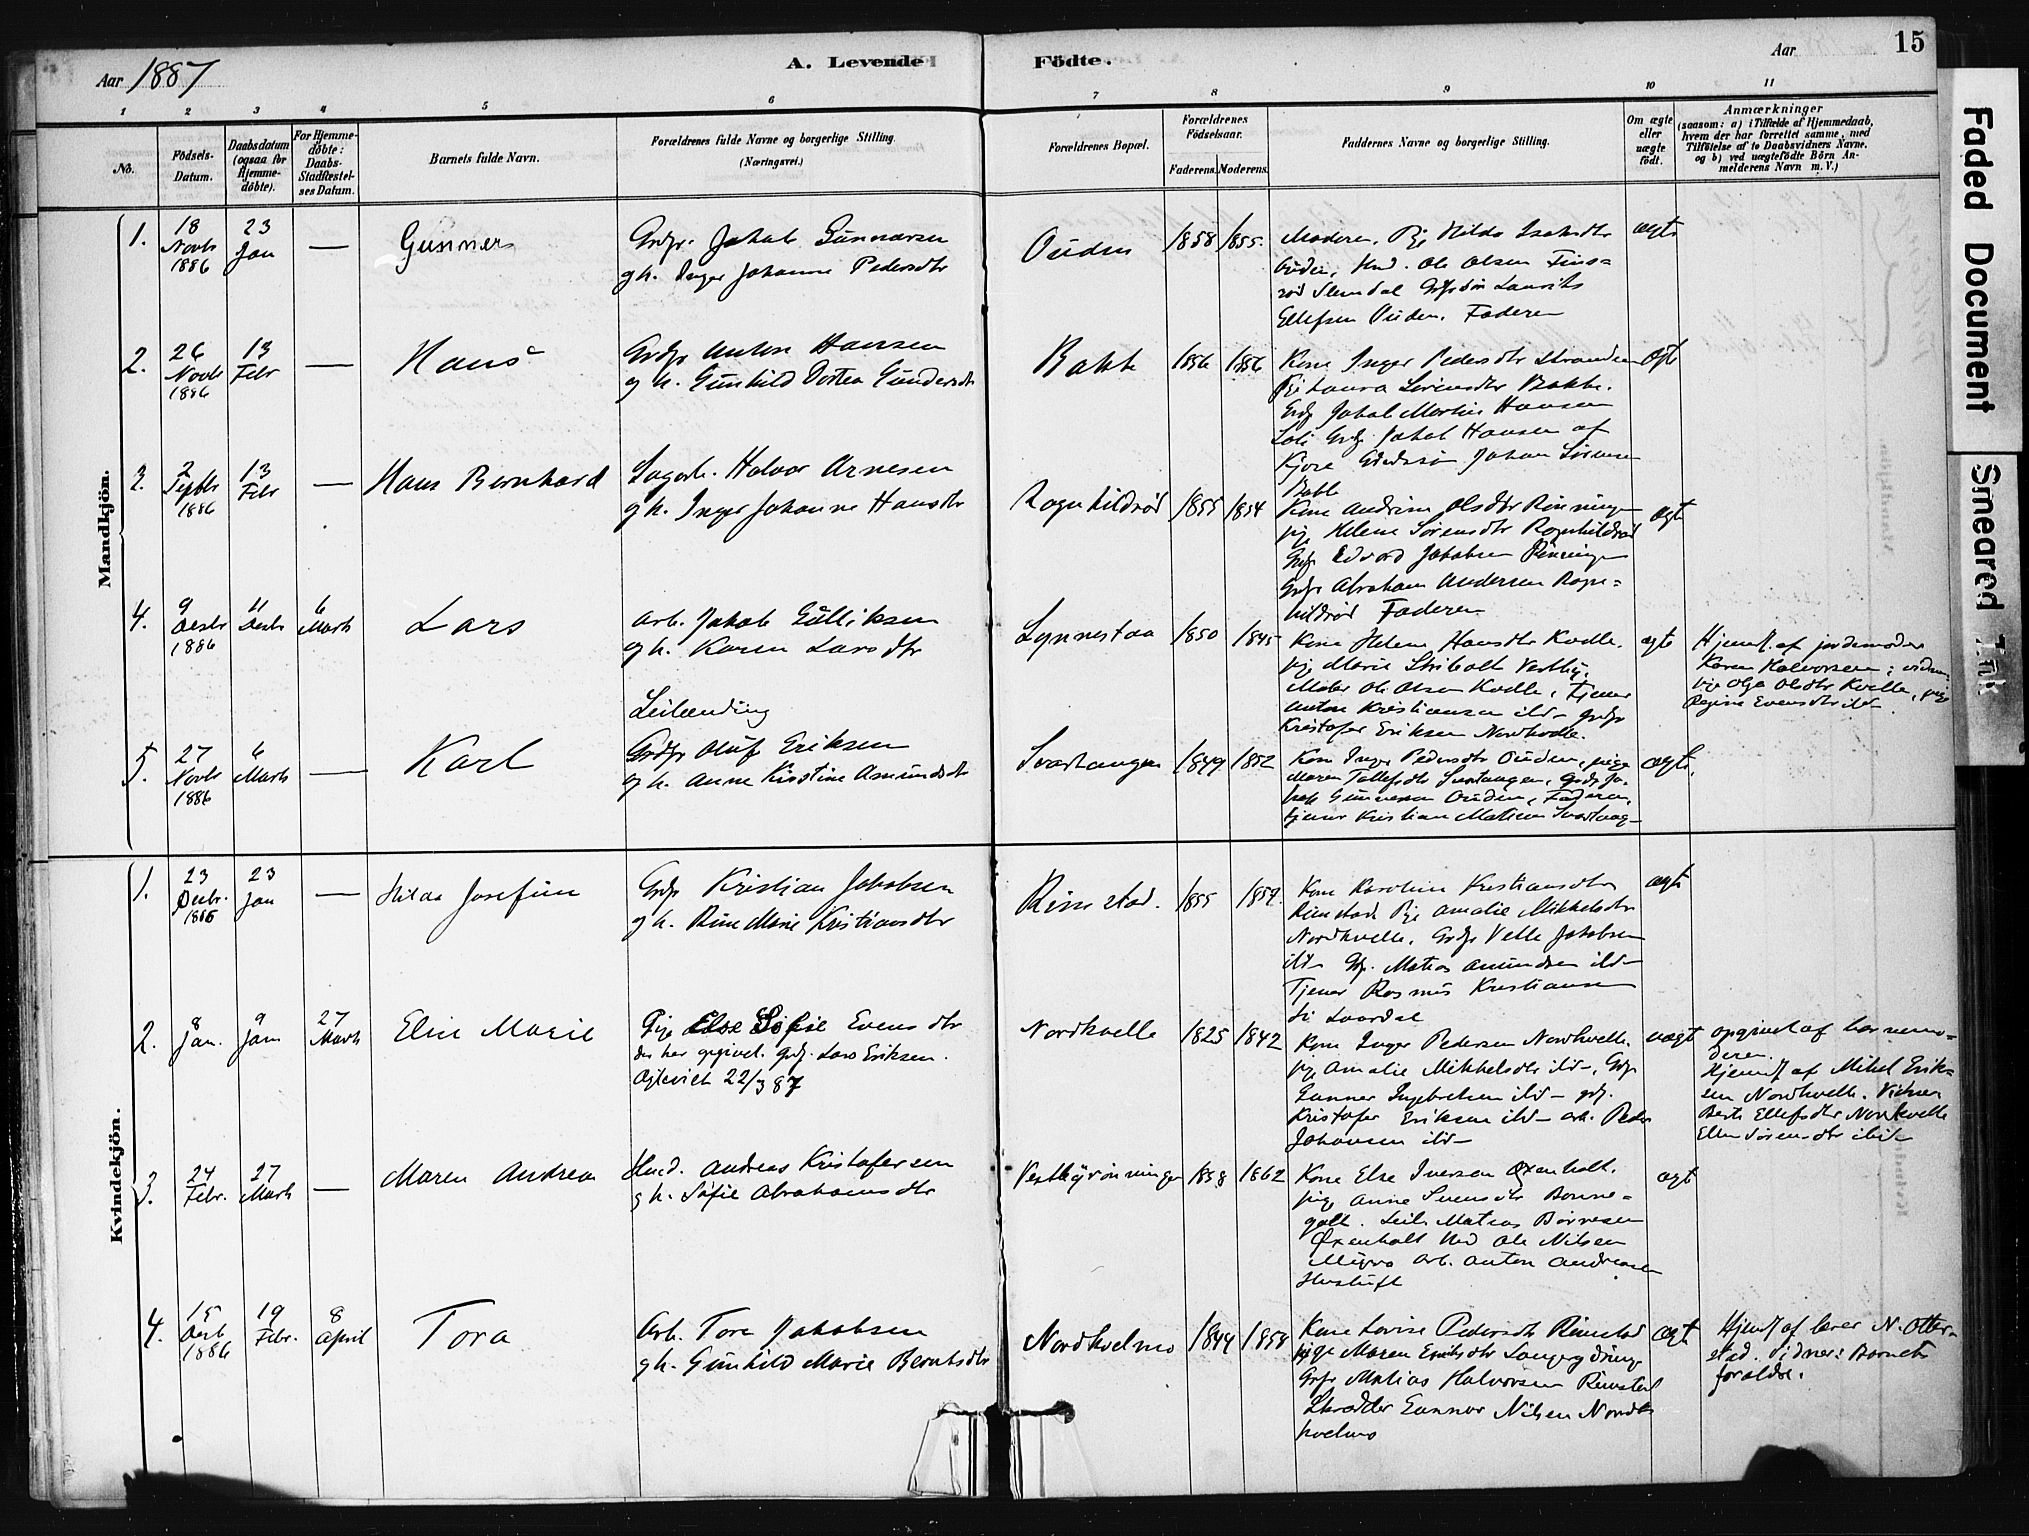 Aar 1887
A. Levende
Fødte.
Aar
15
1 2 3 4 5 6 7 8 9 10 11
No.
Fødsels-Datum.
Daabsdatum (ogsaa for Hjemme-døbte).
For Hjemme-døbte: Daabs-Stadfæstel-ses Datum.
Barnets fulde Navn.
Forældrenes fulde Navne og borgerlige Stilling.
(Næringsvei.)
Forældrenes Bopæl.
Forældrenes Fødselsaar.
Faderens. Moderens.
Faddernes Navne og borgerlige Stilling.
Om ægte eller uægte født.
Anmærkninger
(saasom: a) i Tilfælde af Hjemmedaab, hvem der har forrettet samme, med Tilføielse af to Daabsvidners Navne, og b) ved uægtefødte Børn An-melderens Navn m. V.)
Mandkjøn.
1.
18 Novbr 1886
23 Jan
—
Gunner
Grdbr. Jakob Gunnarsen
g h. Inger Johanne Pedersdtr
Ouden
1858 1855.
Moderen, Pige Hilda Isaksdtr
Ouden, Hmd. Ole Olsen Fins=
rød Slemdal Grbrsøn Laurits
Ellefsen Ouden. Faderen
ægte
2.
26 Novbr 1886
13 Febr
—
Hans
Grdbr Anton Hansen
g h. Gunhild Dortea Gundersdtr
Bakke
1856 1856
Kone Inger Pedersdtr Stranden
Pige Laura Sørensdtr Bakke.
Grdbr Jakob Martin Hansen
Grdbr Jakob Hansen af
Kjose Johan Sørensen
ægte
3.
2 Septbr 1886
13 Febr
—
Hans Bernhard
Sagarb. Halvor Arnesen
g h. Inger Johanne Hansdtr
Rognhildrød
1855 1854
Kone Andrine Olsdtr Rønningen
pige Helene Sørensdtr Rognhildrød
Grdbr Edvard Jakobsen Rønningen
Grdbr Abraham Andersen Rogn=
hildrød Faderen
ægte
4.
9 Desbr 1886
11 Desbr
6 Marts
Lars
Arb. Jakob Gulliksen
g h. Karen Larsdtr
Lynnestaa
1850 1845
Kone Helene Hansdtr Kvelle.
pige Marie Vestby.
Maler Ole Olsen Kvelle, Tjener
Anton Kristiansen ild- Grdbr
Kristofer Eriksen Nordkvelle.
ægte
Hjemd. af jordemoder
Karen Halvorsen; vidner
pige Olga Olsdtr Kvelle, pige
Regine Evensdtr ild
5.
27 Novbr 1886
6 Marts
—
Karl
Leilænding
Grdbr Oluf Eriksen
g h. Anne Kristine Amundsdtr
Svartangen
1849 1852
Kone Inger Pedersdtr Ouden, pige
Maren Tollefsdtr Svartangen, Grdbr Ja-
kob Gunnersen Ouden, Faderen,
tjener Kristian Matisen Svartang-
ægte.
Kvindekjøn.
1.
23 Decbr. 1886
23 Jan
—
Hilda Josefine
Grdbr Kristian Jakobsen
g h. Rine Marie Kristiansdtr
Rimstad.
1855 1859.
Kone Karoline Kristiansdtr
Rimstad Pige Amalie Mikkelsdtr
Nordkvelle, Grdbr Velle Jakobsen
ild- Grdbr. Matias Amundsen ild-
Tjener Rasmus Kristiansen
Laardal
ægte
2.
8 Jan.
9 Jan
27 Marts
Elise Marie
Pige Else Sofie Evensdtr
der har opgivet grdbr. Lars Eriksen.
Ægteviet 22/3 87
Nordkvelle
1825 1842
Kone Inger Pedersen Nordkvelle.
pige Amalie Mikkelsdtr ild-, Grdbr
Gunner Ingebretsen ild- grdbr.
Kristofer Eriksen ild- arb. Peder
Johansen ild-
uægte
opgivet af barnemo=
deren.
Hjemd. af Mikel Erik=
sen Nordkvelle. Vidner
Berte Ellefsdtr Nordkvelle
Ellen Sørensdtr ibid-
3.
24 Febr.
27 Marts
—
Maren Andrea
Hmd. Andreas Kristofersen
g h. Sofie Abrahamsdtr
Vestbyrønningen
1858 1862
Kone Else Iversen Øxenholt.
pige Anne Svensdtr Bonne=
galt. Leil. Matias Børresen
Øxenholt Hmd Ole Nilsen
arb. Anton Andreasen
ægte
4.
15 Desb 1886
19 Febr.
8 April
Tora
Arb. Tore Jakobsen
g h. Gunhild Marie Berntsdtr
Nordholmo
1844 1854
Kone Lovise Pedersdtr Rimstad
pige Maren Eriksdtr
Grdbr Matias Halvorsen Rimstad
Skrædder Gunnar Nilsen Nord=
holmo
ægte
Hjemd. af lærer N. Otter=
stad. Vidner: Barnets
forældre.
Faded Document
Smeared Ink